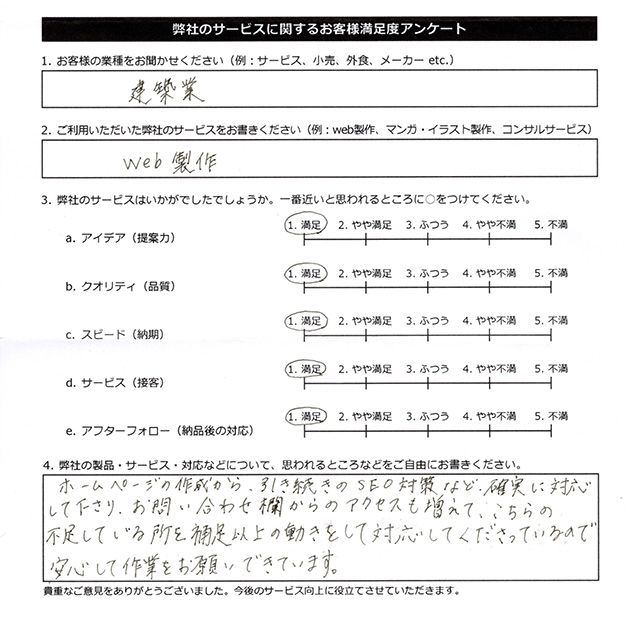 弊社のサービスに関するお客様満足度アンケート
1. お客様の業種をお聞かせください（例：サービス、小売、外食、メーカー etc.）
建築業
2. ご利用いただいた弊社のサービスをお書きください（例：web製作、マンガ・イラスト製作、コンサルサービス）
web 製作
3. 弊社のサービスはいかがでしたでしょうか。一番近いと思われるところに○をつけてください。
a. アイデア（提案力） 1. 満足 2. やや満足 3. ふつう 4. やや不満 5. 不満
b. クオリティ（品質） 1. 満足 2. やや満足 3. ふつう 4. やや不満 5. 不満
c. スピード（納期） 1. 満足 2. やや満足 3. ふつう 4. やや不満 5. 不満
d. サービス（接客） 1. 満足 2. やや満足 3. ふつう 4. やや不満 5. 不満
e. アフターフォロー（納品後の対応） 1. 満足 2. やや満足 3. ふつう 4. やや不満 5. 不満
4. 弊社の製品・サービス・対応などについて、思われるところなどをご自由にお書きください。
ホームページの作成から、引き続きのSEO対策など、確実に対応
して下さり、お問い合わせ欄からのアクセスも増えて、こちらの
不足している所を補足以上の動きをして対応してくださっているので
安心して作業をお願いできています。
貴重なご意見をありがとうございました。今後のサービス向上に役立てさせていただきます。